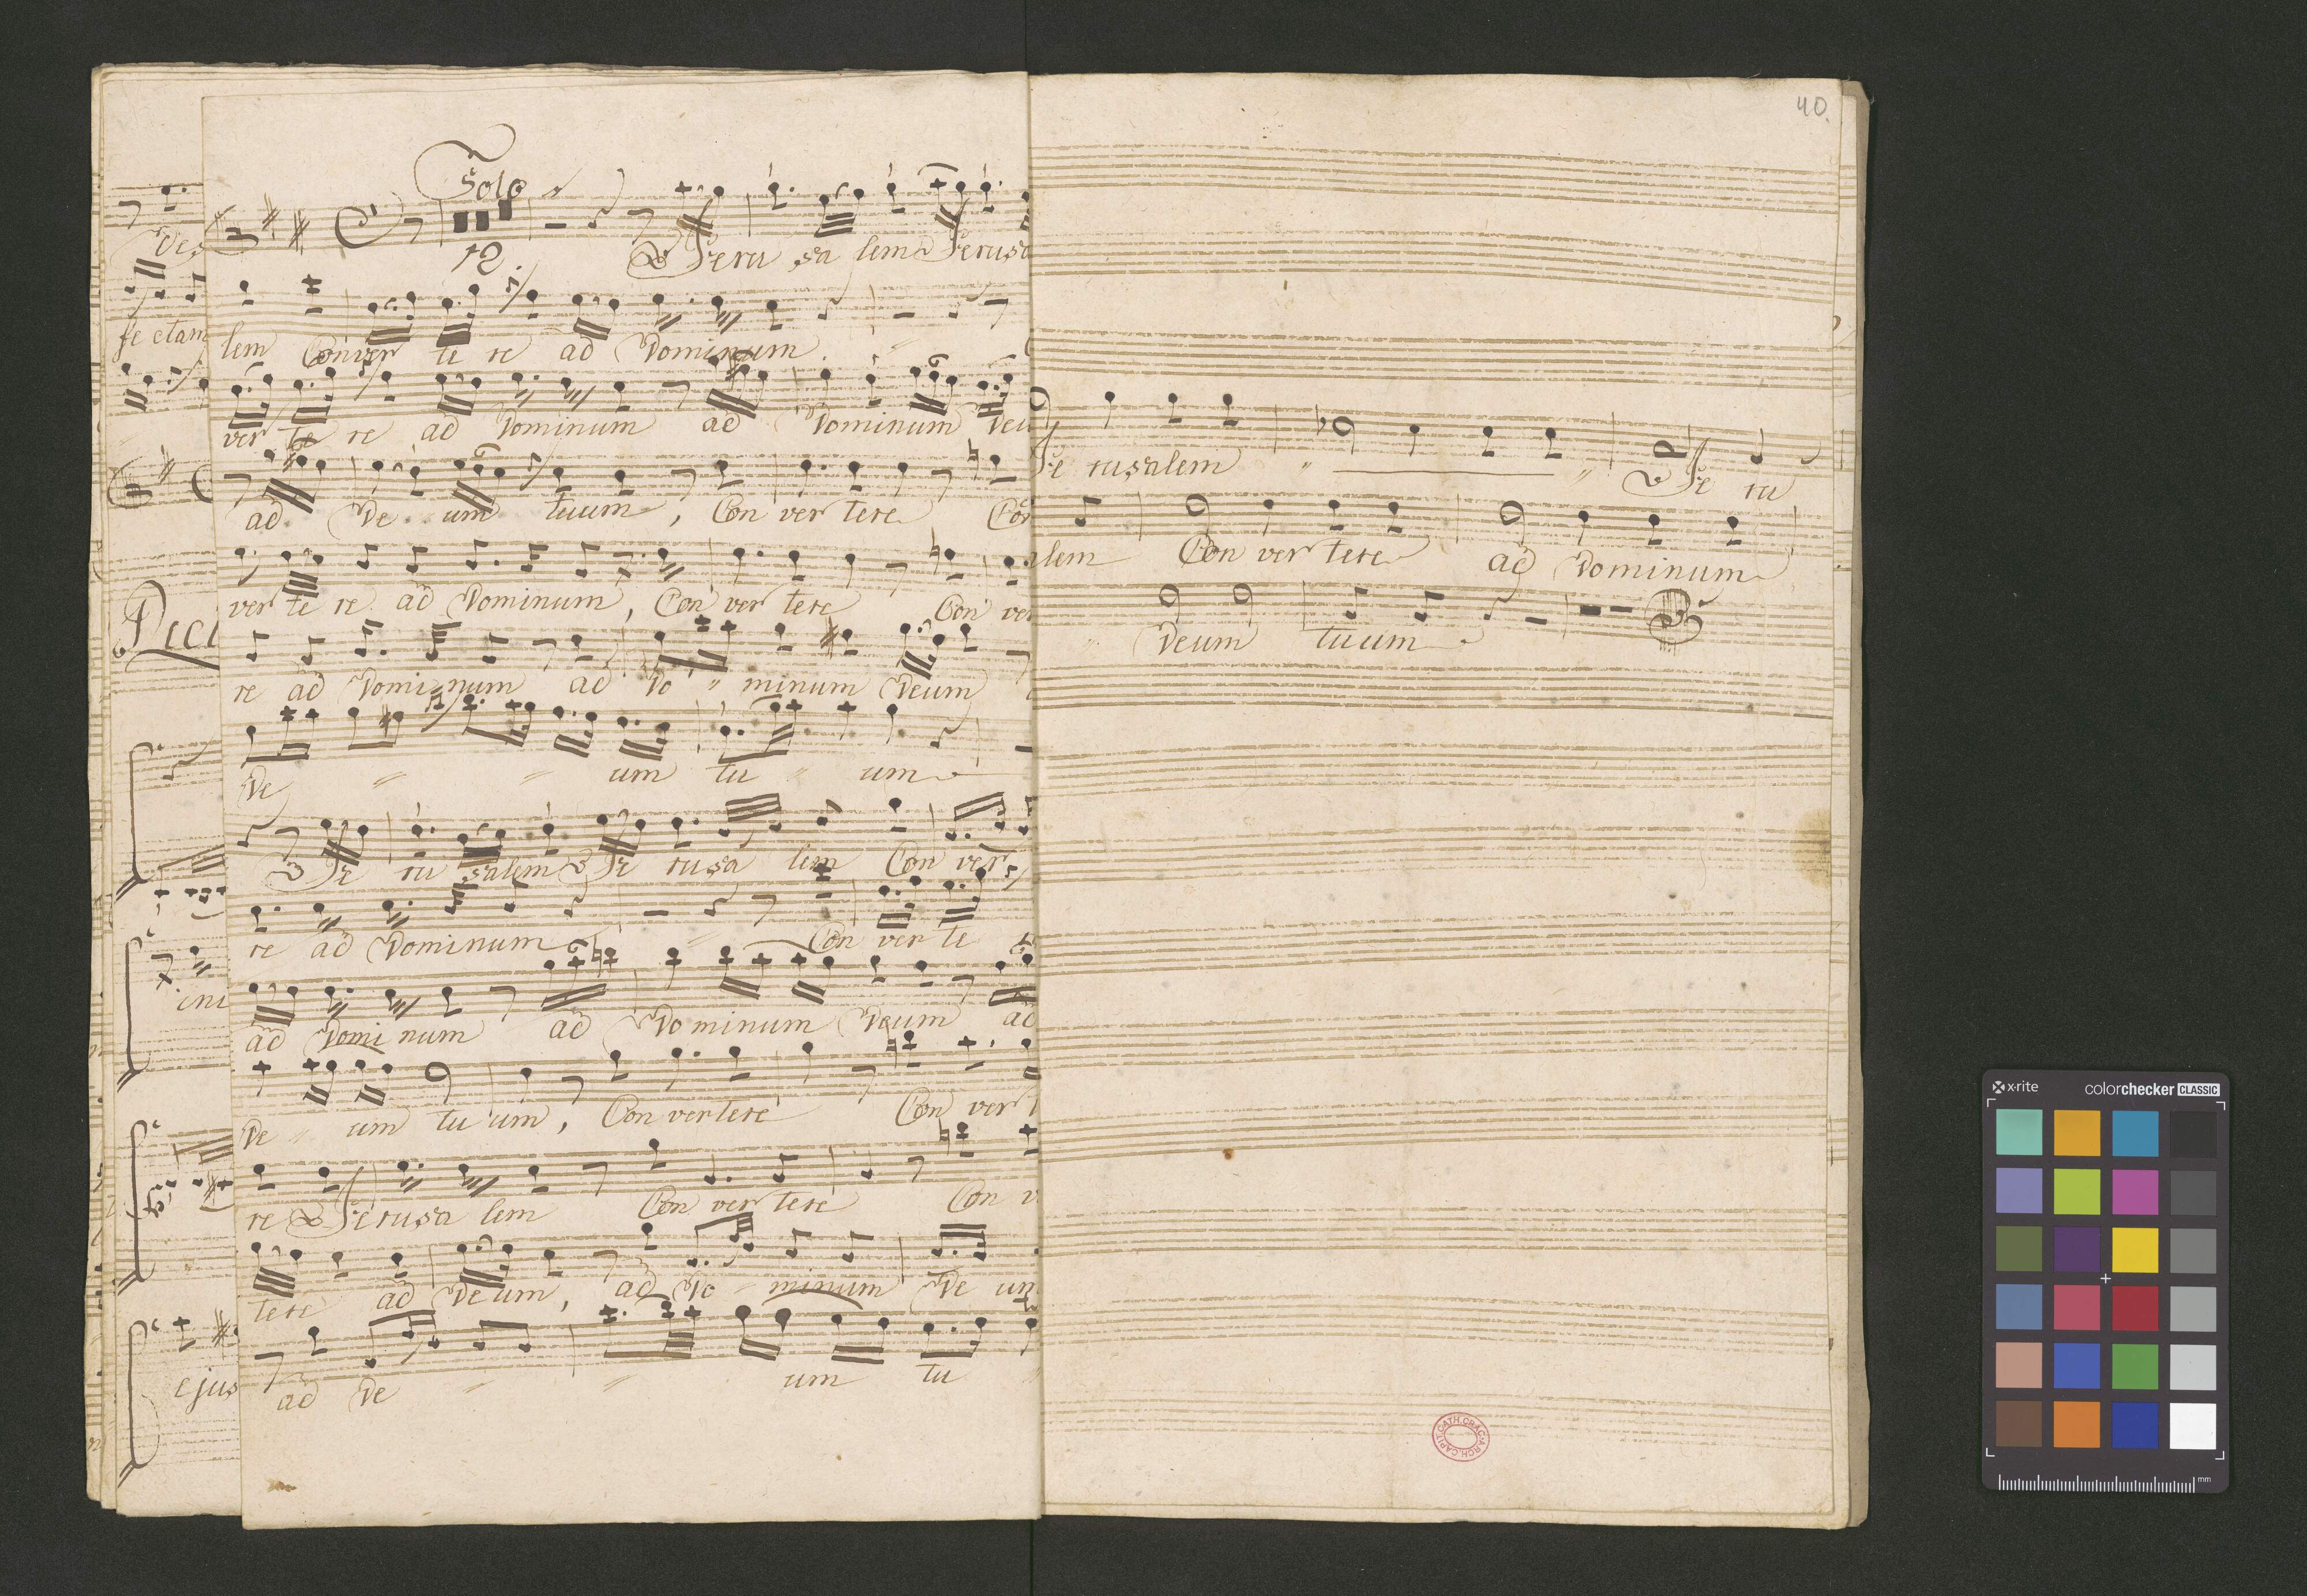 40.
Solo
12.
Jeru sa lem Jerusa
lem Conver te re ad Dominum.
ver te re ad Dominum ad Dominum Deu
ad De um tuum, Con vertere Con
ver te re ad Dominum, Con ver tere Con ver
re ad Domi num ad Do minum Deum
De um tu um
Je ru salem Je rusa lem Con ver
re ad Dominum Con ver te
ad Domi num ad Do minum Deum ad
De um tu um, Con vertere Con ver
re Jerusa lem Con ver tere Con v
tere ad De um, ad Do minum De um
ad De um tu
fe ctam
ejus
Je rusalem Je ru
alem Con ver tere ad Dominum
Deum tuum
ARCH.CAPIT.CATH.CRAC.
x-rite colorchecker CLASSIC
mm